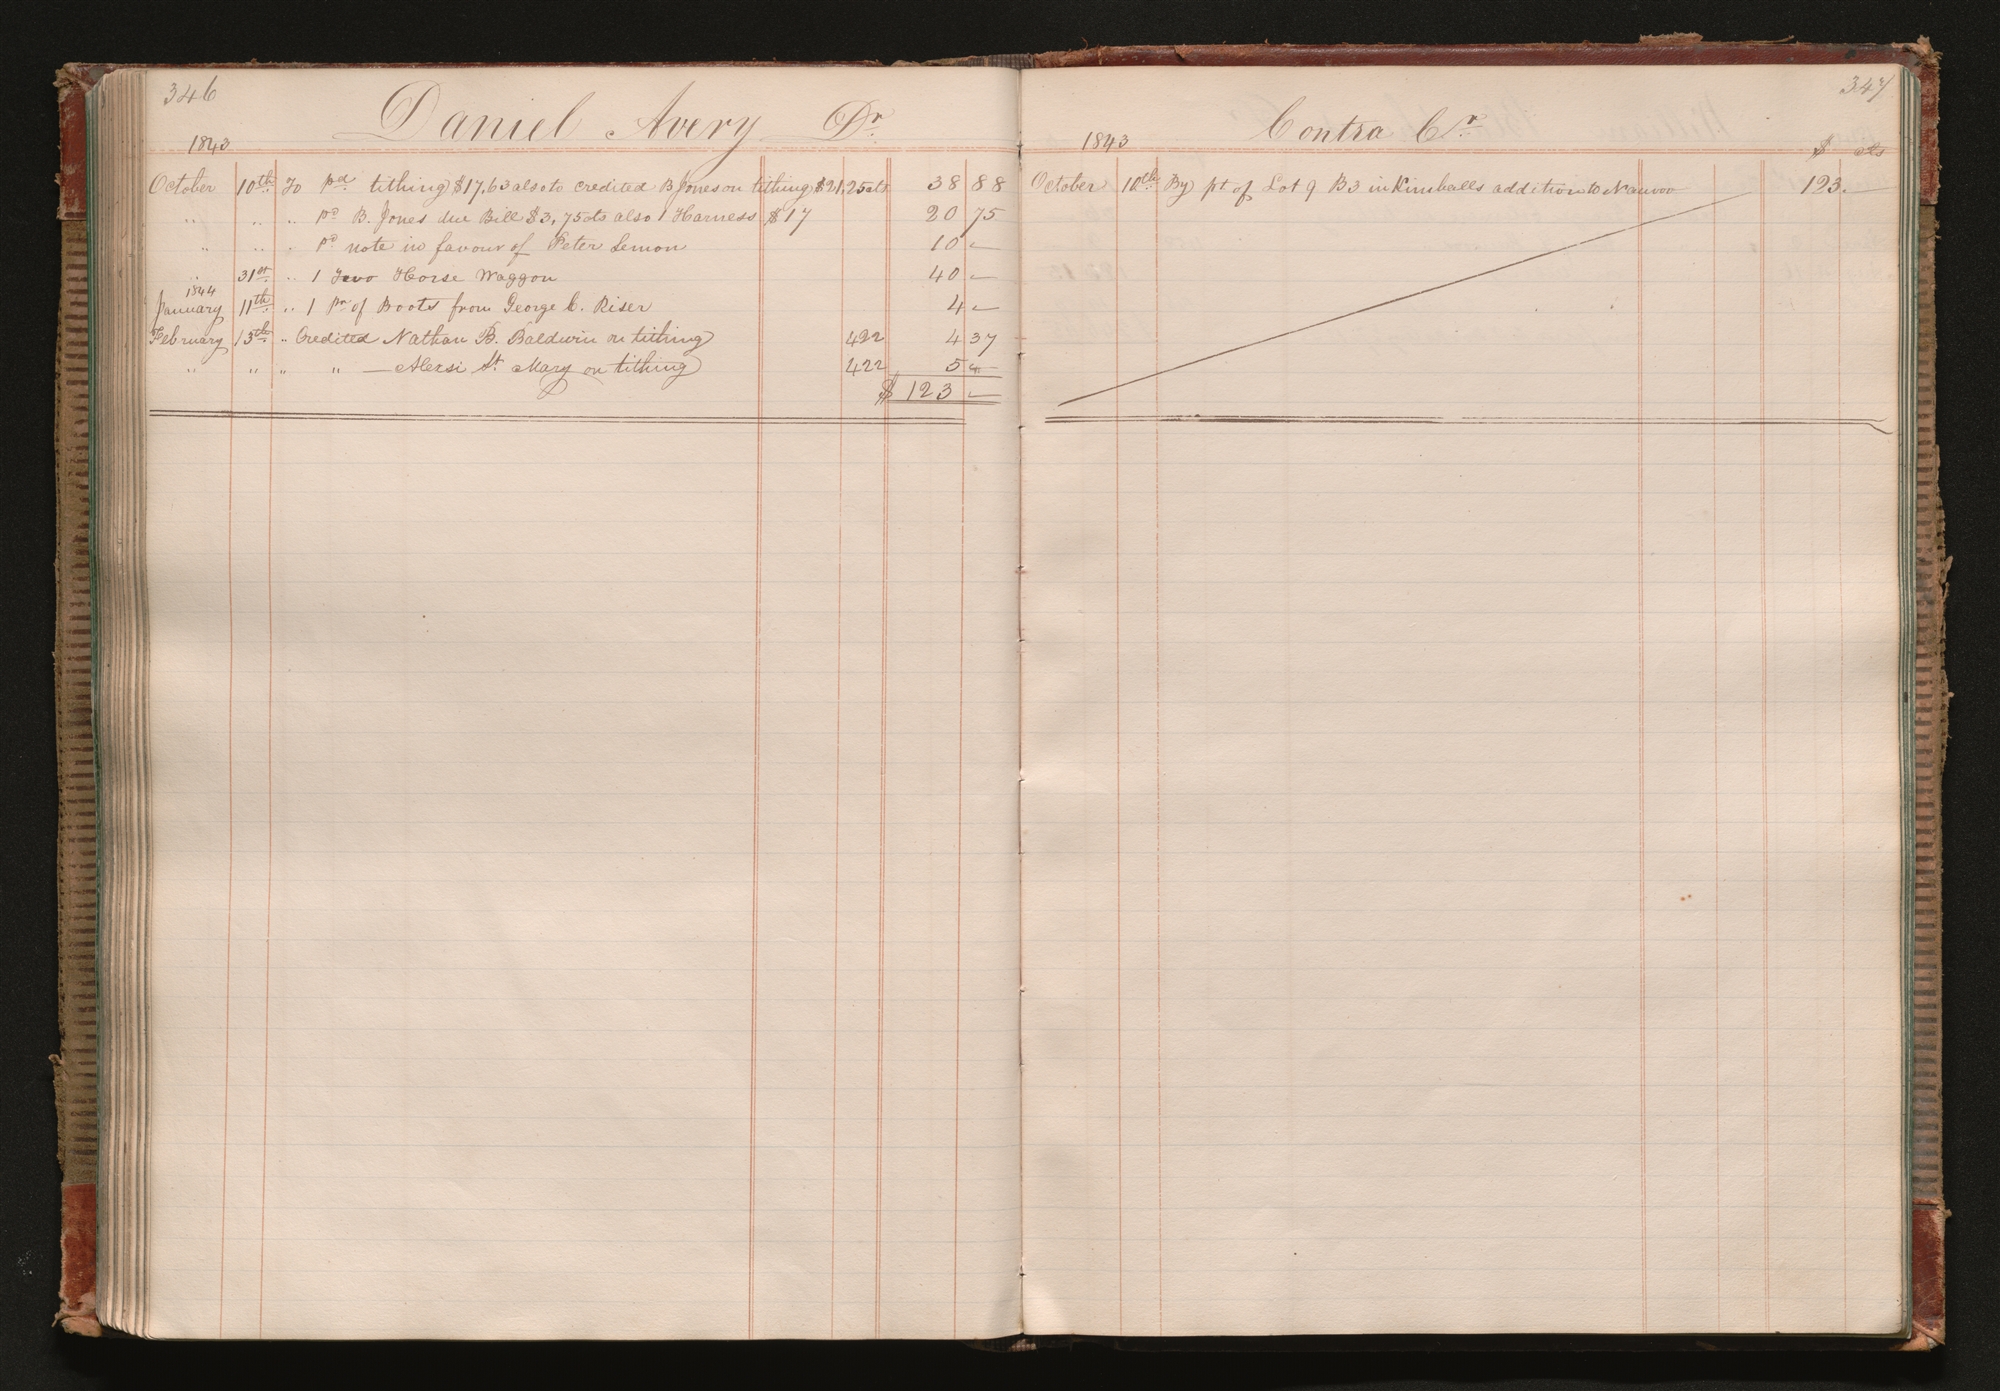 346
Daniel Avery Dr.
1843
October 10th To pd tithing $17,63 also to credited B Jones on tithing $21,25 cts 38 88
" " " pd B. Jones due Bill $3,75 cts also 1 Harness $17 20 75
" " " pd note in favour of Peter Lemon 10 –
" 31st " 1 Two Horse Waggon 40 –
1844
January 11th " 1 pr of Boots from George C. Riser 4 –
February 13th " Credited Nathan B. Baldwin on tithing 422 4 37
" " " " — Alexsi St. Mary on tithing 422 5 –
$ 123 –
347
Contra Cr.
1843
$ cts
October 10th By pt of Lot 9 B3 in Kimballs addition to Nauvoo 123. –